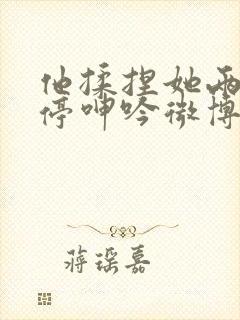 他揉捏她两
停呻吟微博
蒋深嘉